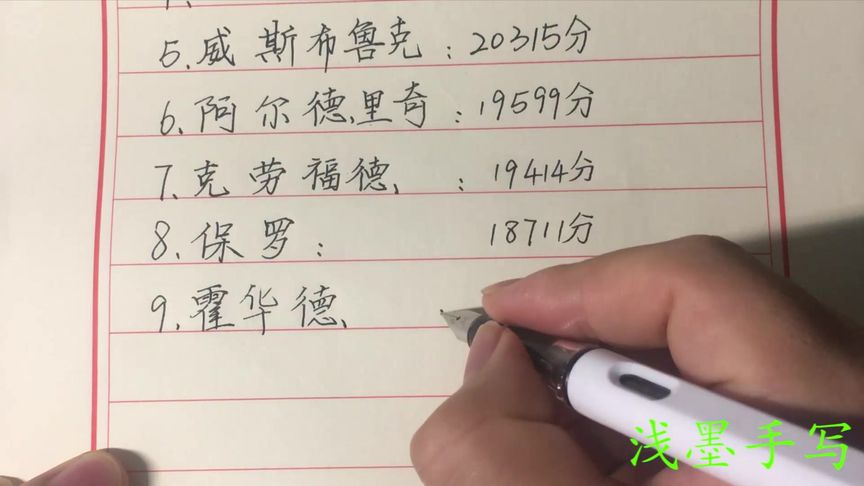 5.威斯布鲁克:20315分
6.阿尔德里奇:19599分
7.克劳福德:19414分
8.保罗:18711分
9.霍华德
浅墨手写